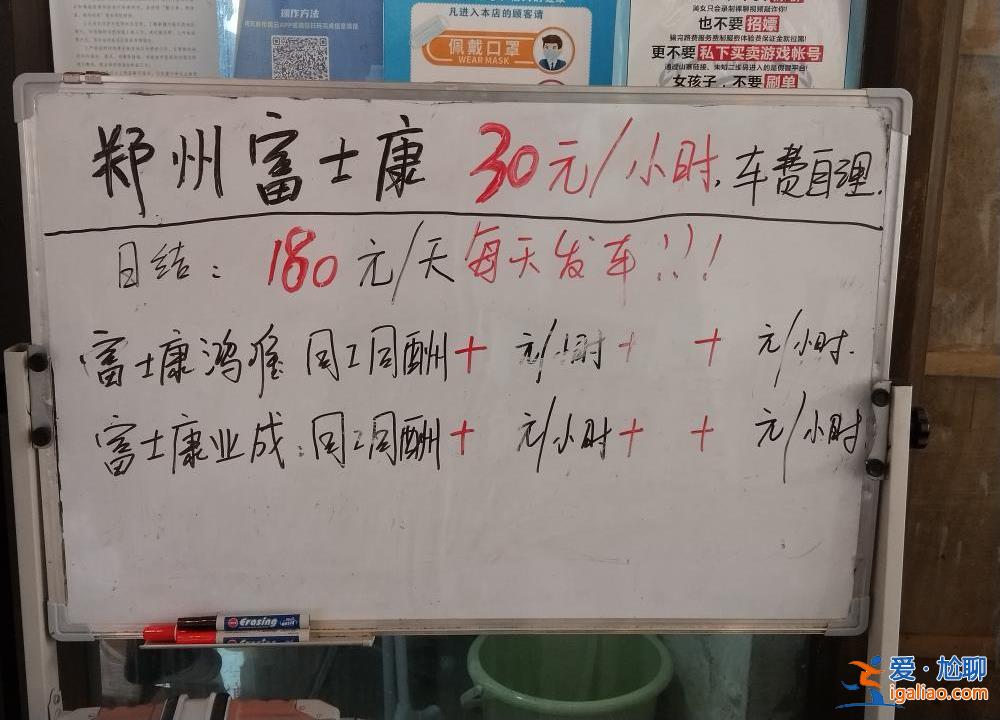 操作方法
凡进入本店的顾客请
佩戴口罩
WEAR MASK
也不要 招嫖
更不要 私下买卖游戏帐号
女孩子，不要 刷单
郑州富士康 30元/小时，车费自理.
日结：180元/天 每天发车!!!
富士康鸿 同工同酬+ 元/小时+ + 元/小时.
富士康业成：同工同酬+ 元/小时+ + 元/小时
Erasing
Erasing
爱·尬聊
igaliao.com